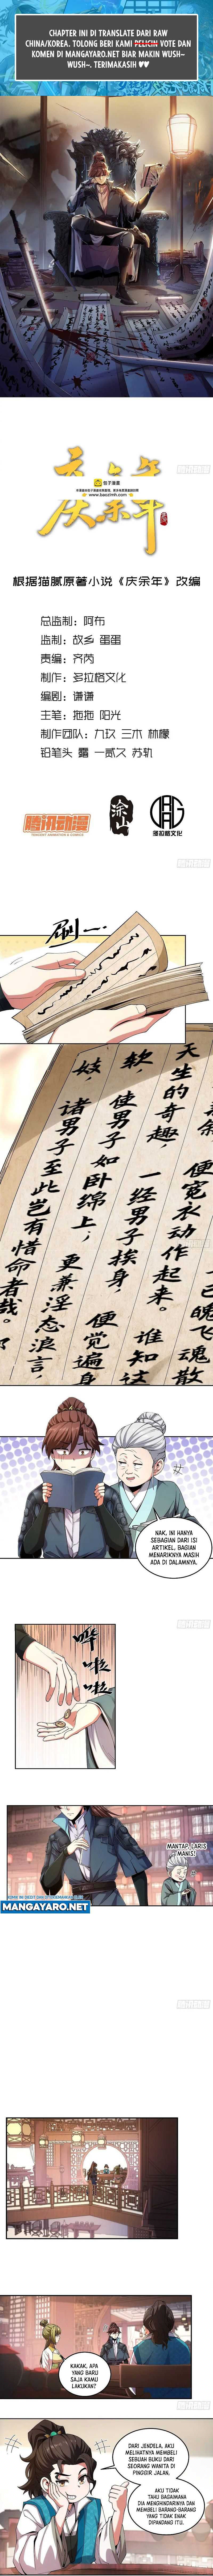 CHAPTER INI DI TRANSLATE DARI RAW
CHINA/KOREA. TOLONG BERI KAMI VOTE DAN
KOMEN DI MANGAYARO.NET BIAR MAKIN WUSH~
WUSH~. TERIMAKASIH ♥♥
庆余年
包子漫畫
www.baozimh.com
根据猫腻原著小说《庆余年》改编
总监制：阿布
监制：故乡 蛋蛋
责编：齐芮
制作：多拉格文化
编剧：谦谦
主笔：拖拖 阳光
制作团队：九玖 三木 林檬
铅笔头 露 一贰又 苏轨
腾讯动漫
TENCENT ANIMATION & COMICS
涂山
多拉格文化
刷一
便宽衣动作起来。谁知这
天生的奇趣，一经男子挨身，便觉遍身
软，使男子如卧绵上，更兼淫态浪言，
妓，诸男子至此岂有惜命者哉。
已魄飞魂散
NAK, INI HANYA
SEBAGIAN DARI ISI
ARTIKEL, BAGIAN
MENARIKNYA MASIH
ADA DI DALAMNYA.
哗啦啦
MANTAP, LARIS
MANIS!
MANGAYARO.NET
KAKAK, APA
YANG BARU
SAJA KAMU
LAKUKAN?
DARI JENDELA, AKU
MELIHATNYA MEMBELI
SEBUAH BUKU DARI
SEORANG WANITA DI
PINGGIR JALAN.
AKU TIDAK
TAHU BAGAIMANA
DIA MENGHINDARINYA DAN
MEMBELI BARANG-BARANG
YANG TIDAK ENAK
DIPANDANG ITU.